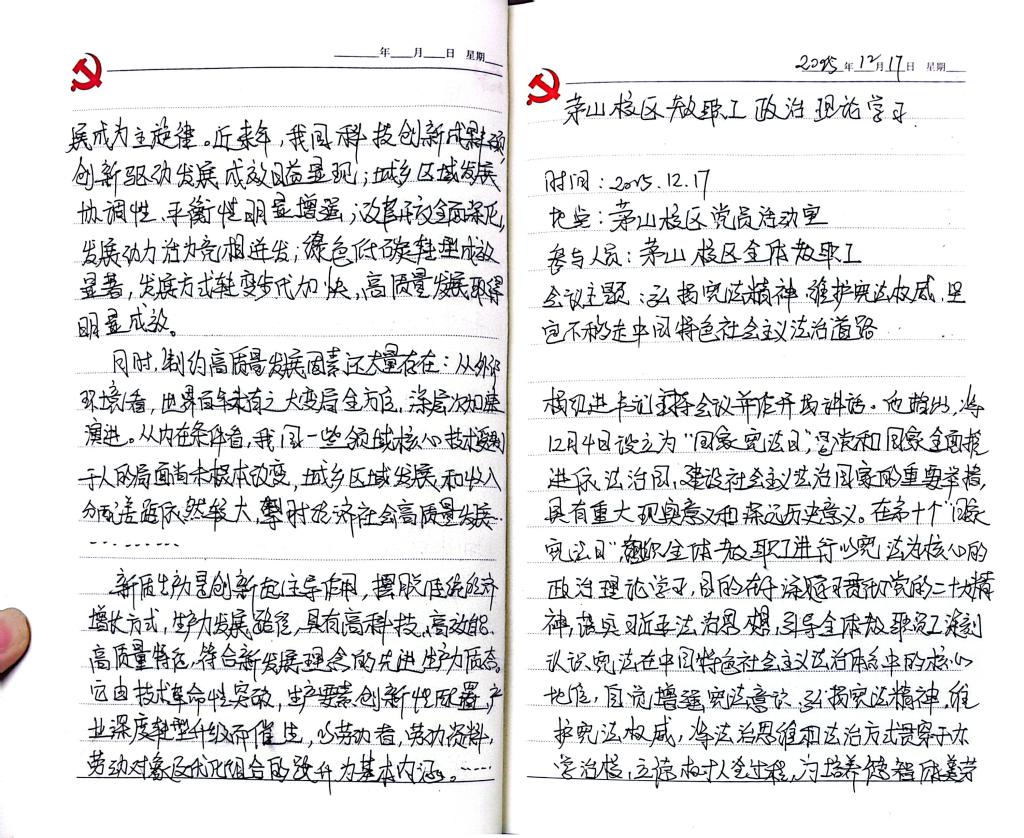 年 月 日 星期
展成为主旋律。近来年,我国科技创新成果丰硕,
创新驱动发展成效日益显现;城乡区域发展
协调性、平衡性明显增强;改革开放全面深化,
发展动力活力竞相迸发;绿色低碳转型成效
显著,发展方式转变步伐加快,高质量发展取得
明显成效。
同时,制约高质量发展因素还大量存在:从外部
环境看,世界百年未有之大变局全方位、深层次加速
演进。从内在条件看,我国一些领域核心技术受制
于人的局面尚未根本改变,城乡区域发展和收入
分配差距依然较大,掣肘经济社会高质量发展……
………
新质生产力是创新起主导作用,摆脱传统经济
增长方式,生产力发展路径,具有高科技、高效能、
高质量特征,符合新发展理念的先进生产力质态。
它由技术革命性突破,生产要素创新性配置,产
业深度转型升级而催生,以劳动者,劳动资料,
劳动对象及优化组合的跃升为基本内涵。……
2025年12月17日 星期
茅山校区教职工政治理论学习
时间:2025.12.17
地点:茅山校区党员活动室
参与人员:茅山校区全体教职工
会议主题:弘扬宪法精神 维护宪法权威,坚
定不移走中国特色社会主义法治道路
书记主持会议并作开场讲话。他指出,将
12月4日设立为“国家宪法日”,是党和国家全面推
进依法治国,建设社会主义法治国家的重要举措,
具有重大现实意义和深远历史意义。在第十个“国家
宪法日”组织全体教职工进行以宪法为核心的
政治理论学习,目的在于深入学习贯彻党的二十大精
神,落实习近平法治思想,引导全体教职员工深刻
认识宪法在中国特色社会主义法治体系中的核心
地位,自觉增强宪法意识、弘扬宪法精神,维
护宪法权威,将法治思维和法治方式贯穿于办
学治校,立德树人全过程,为培养德智体美劳